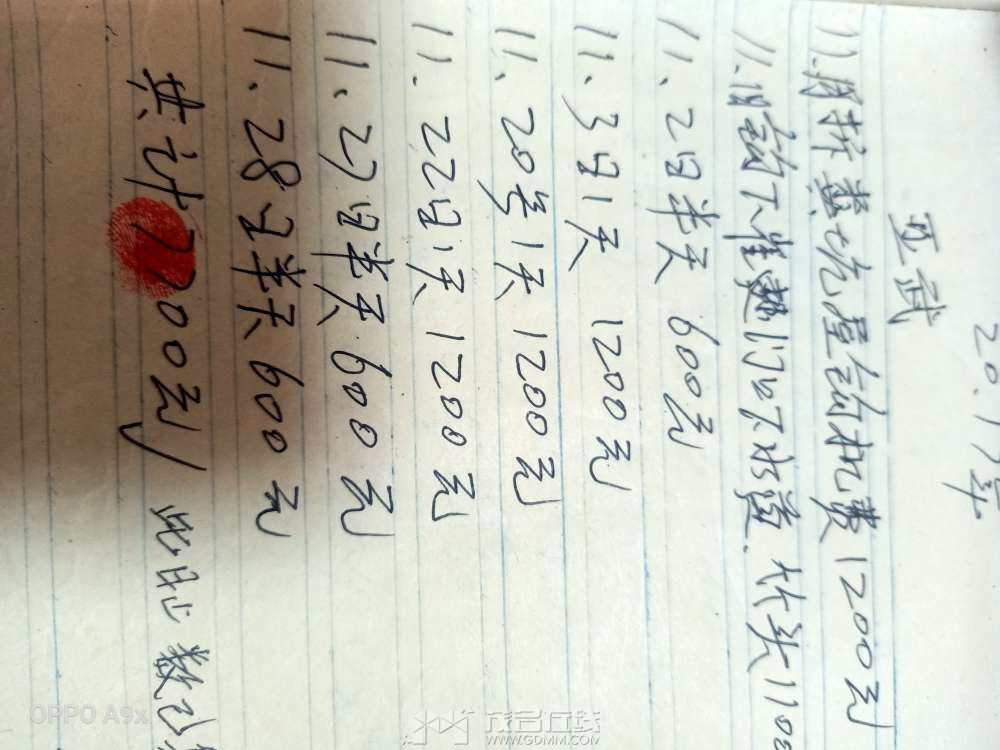 20.17年
亚武
11.1日拆黄坑屋钩机费1200元
11.1日钩下准楚门口下水道.竹头1100
11.2日半天 600元
11.3日1天 1200元
11.20号1天1200元
11.22日1天1200元
11.27日半天600元
11.28日半天600元
共计7700元 此时数已
OPPO A9x
茂名在线
WWW.GDMM.COM